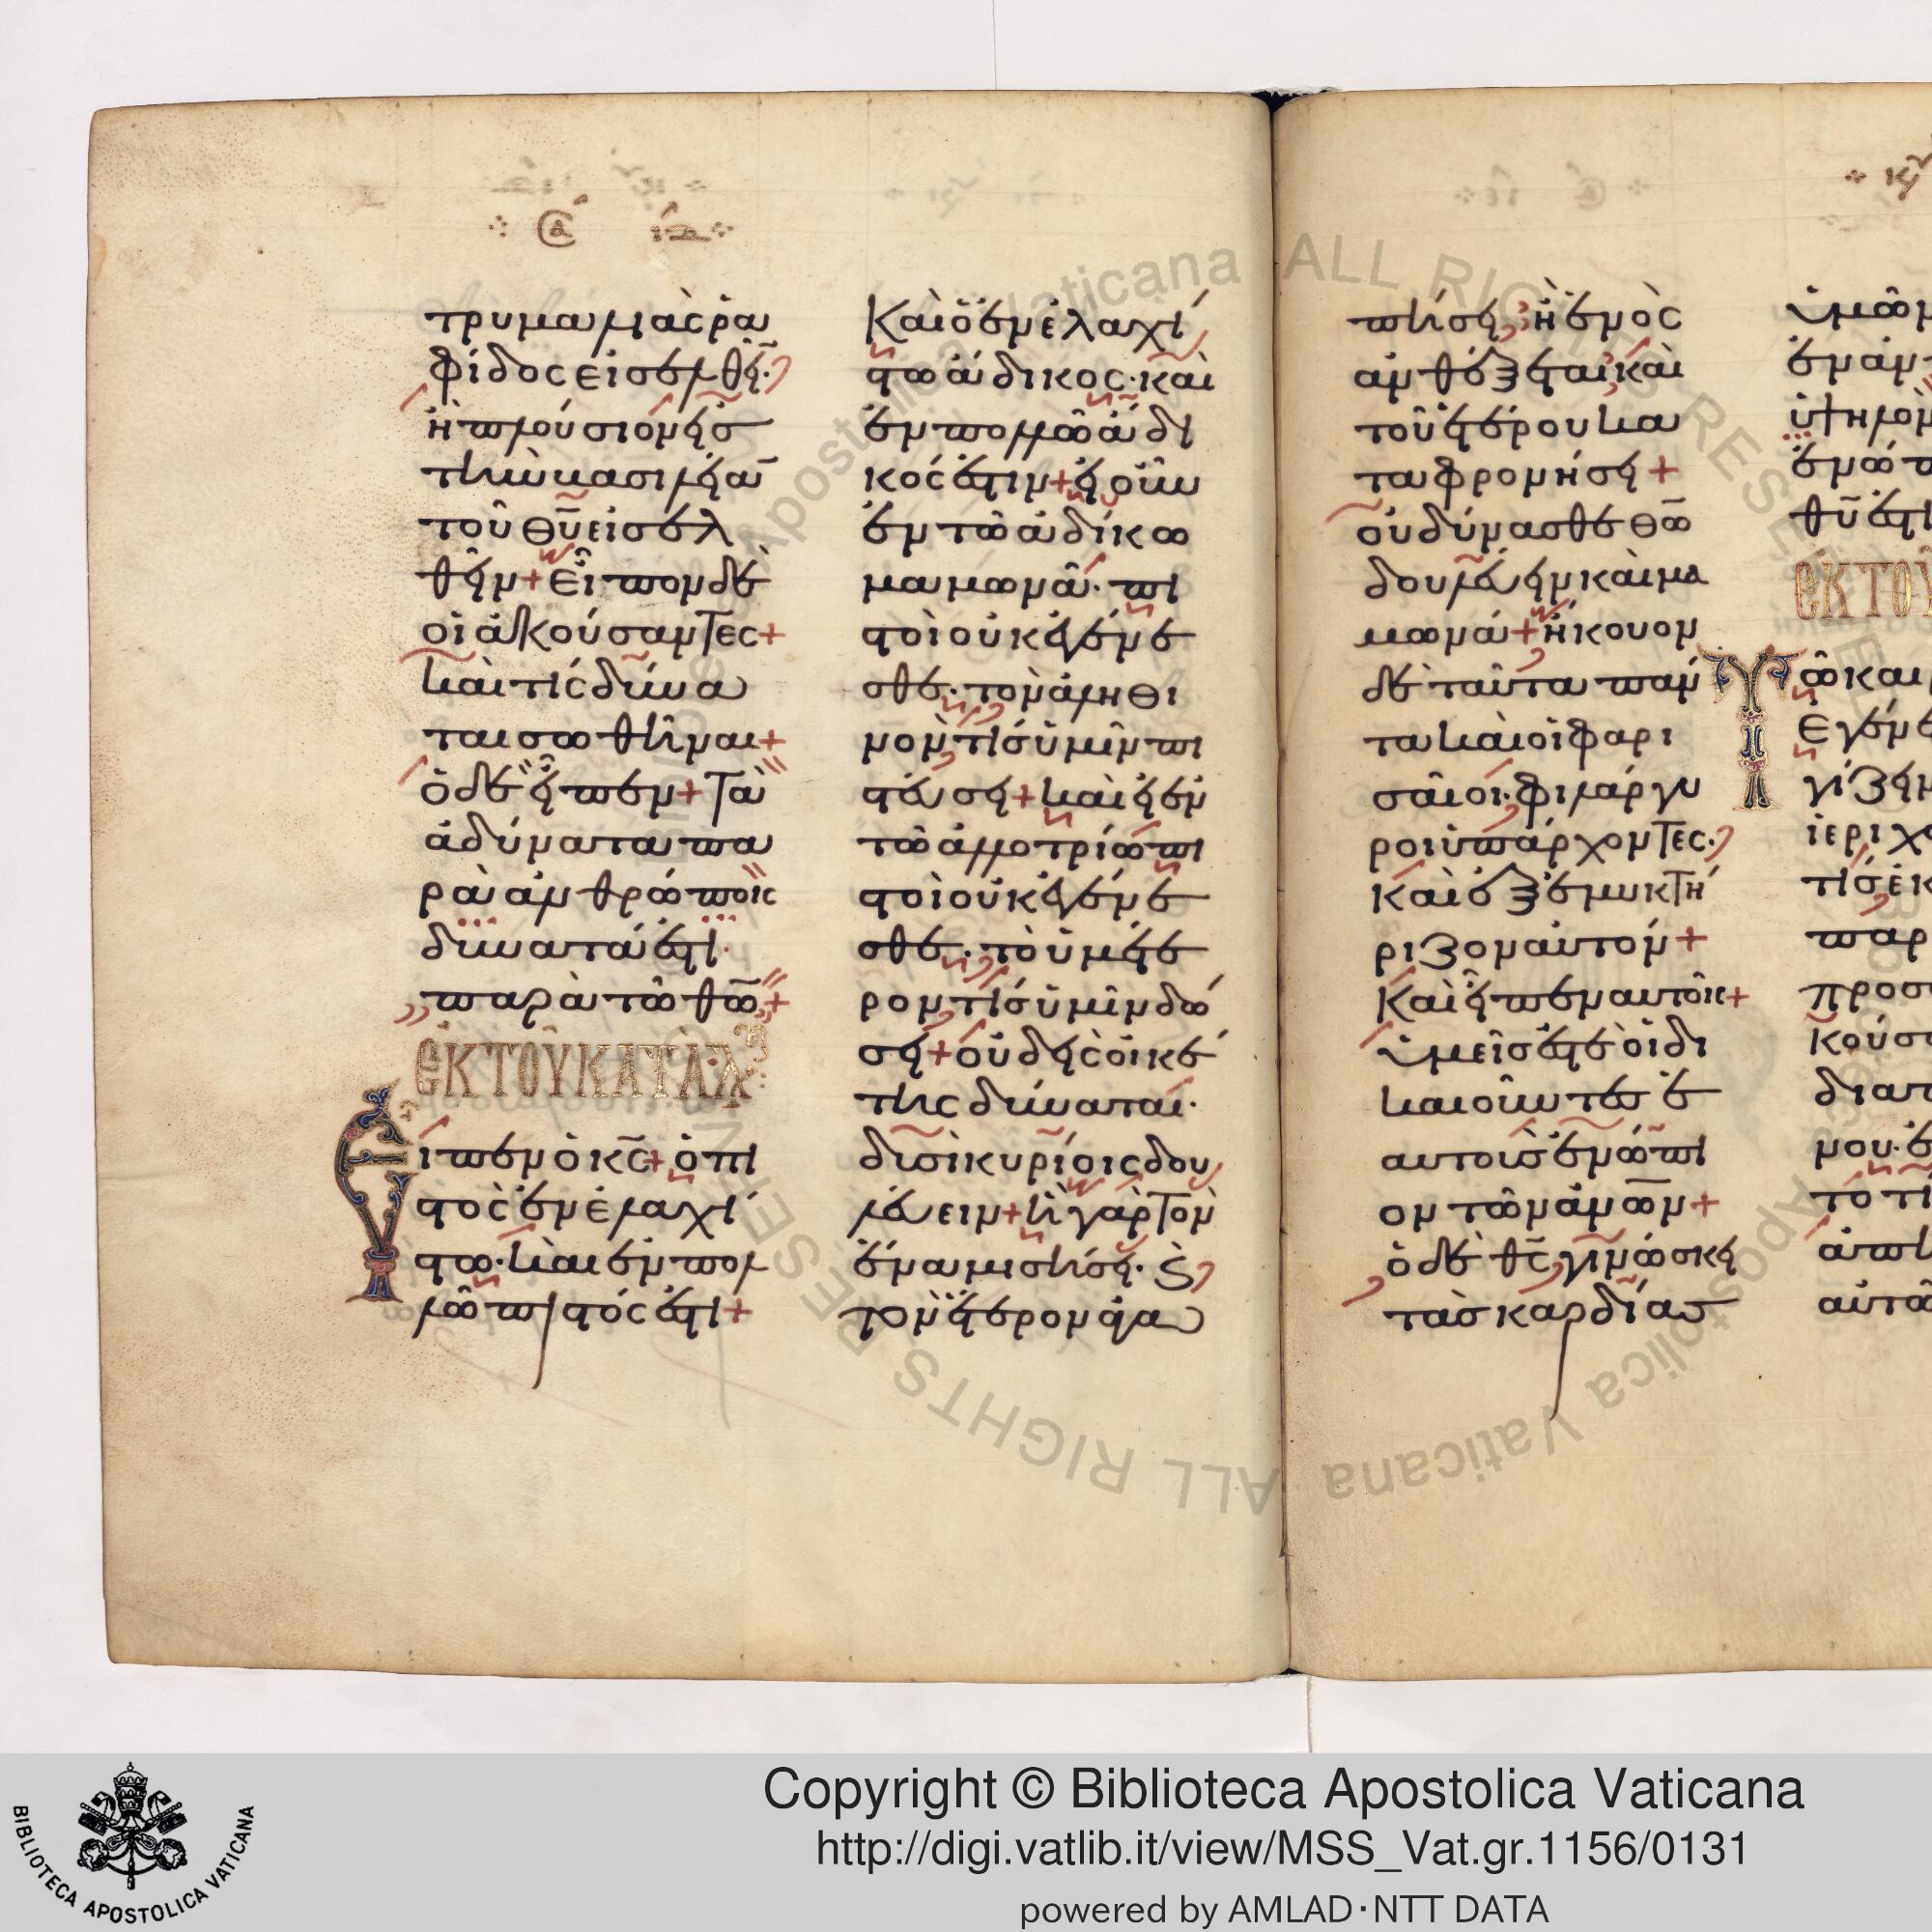 Σα ια
τρυμαλιὰς ῥα
φίδος εἰσελθεῖν·
ἢ πλούσιον εἰσ
τὴν βασιλείαν
τοῦ θυ εἰσελ
θεῖν + Εἶπον δὲ
οἱ ἀκούσαντες +
καὶ τίς δύνα
ται σωθῆναι +
ὁ δὲ εἶπεν + Τὰ
ἀδύνατα πα
ρὰ ἀνθρώποις
δυνατά ἐστι·
παρὰ τῶ θῶ +
ἐκ τοῦ κατὰ λ
Εἶπεν ὁ κς + ὁ πι
στὸς ἐν ἐλαχί
στω· καὶ ἐν πολ
λῶ πιστός ἐστι +
Καὶ ὁ ἐν ἐλαχί
στω ἄδικος· καὶ
ἐν πολλῶ ἄδι
κός ἐστιν + εἰ οὖν
ἐν τῶ ἀδίκω
μαμωνᾶ· πι
στοὶ οὐκ ἐγένε
σθε· τὸ ἀληθι
νὸν τίς ὑμῖν πι
στεύσει + καὶ εἰ ἐν
τῶ ἀλλοτρίω πι
στοὶ οὐκ ἐγένε
σθε· τὸ ὑμέτε
ρον τίς ὑμῖν δώ
σει + οὐδεὶς οἰκέ
της δύναται·
δυσὶ κυρίοις δου
λεύειν + ἢ γὰρ τὸν
ἕνα μισήσει· καὶ
τὸν ἕτερον ἀγα
πήσει· ἢ ἑνὸς
ἀνθέξεται καὶ
τοῦ ἑτέρου κα
ταφρονήσει +
οὐ δύνασθε θῶ
δουλεύειν καὶ μα
μωνᾶ + ἤκουον
δὲ ταῦτα πάν
τα καὶ οἱ φαρι
σαῖοι· φιλάργυ
ροι ὑπάρχοντες·
καὶ ἐξεμυκτή
ριζον αὐτόν +
Καὶ εἶπεν αὐτοῖς +
ὑμεῖς ἐστὲ οἱ δι
καιοῦντες ἑ
αυτοὺς ἐνώπι
ον τῶν ἀνων +
ὁ δὲ θς γινώσκει
τὰς καρδίας
ὑμῶν
ἐν ἀν
ὑψηλὸν
ἐνώπ
θυ ἐστι
ἐκ τοῦ
Τῶ και
Εγένε
γίζειν
ἱεριχὼ
τίς ἐκ
παρ
προσ
κούσ
διαπ
μου· ἐ
το τί
ἀπή
αὐτῶ
Copyright © Biblioteca Apostolica Vaticana
http://digi.vatlib.it/view/MSS_Vat.gr.1156/0131
powered by AMLAD·NTT DATA
BIBLIOTECA APOSTOLICA VATICANA